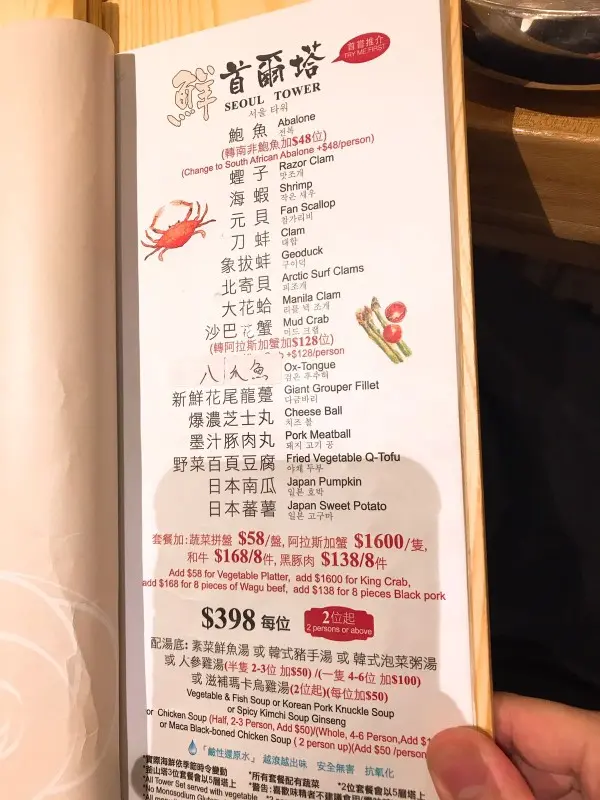 鮮 首爾塔
首嘗推介
TRY ME FIRST
SEOUL TOWER
서울 타워
鮑魚 Abalone
전복
(轉南非鮑魚加$48位)
(Change to South African Abalone +$48/person)
蟶子 Razor Clam
맛조개
海蝦 Shrimp
작은 새우
元貝 Fan Scallop
참가리비
刀蚌 Clam
대합
象拔蚌 Geoduck
구이덕
北寄貝 Arctic Surf Clams
피조개
大花蛤 Manila Clam
리틀 넥 조개
沙巴花蟹 Mud Crab
머드 크랩
(轉阿拉斯加蟹加$128位)
+$128/person
八爪魚 Ox-Tongue
검은 후추혀
新鮮花尾龍躉 Giant Grouper Fillet
다금바리
爆濃芝士丸 Cheese Ball
치즈 볼
墨汁豚肉丸 Pork Meatball
돼지 고기 공
野菜百頁豆腐 Fried Vegetable Q-Tofu
야채 두부
日本南瓜 Japan Pumpkin
일본 호박
日本蕃薯 Japan Sweet Potato
일본 고구마
套餐加:蔬菜拼盤 $58/盤, 阿拉斯加蟹 $1600/隻,
和牛 $168/8件, 黑豚肉 $138/8件
Add $58 for Vegetable Platter, add $1600 for King Crab,
add $168 for 8 pieces of Wagu beef, add $138 for 8 pieces Black pork
$398 每位
2位起
2 persons or above
配湯底: 素菜鮮魚湯 或 韓式豬手湯 或 韓式泡菜粥湯
或 人參雞湯(半隻 2-3位 加$50) /(一隻 4-6位 加$100)
或 滋補瑪卡烏雞湯(2位起)(每位加$50)
Vegetable & Fish Soup or Korean Pork Knuckle Soup
or Spicy Kimchi Soup Ginseng
or Chicken Soup (Half, 2-3 Person, Add $50)/(Whole, 4-6 Person,Add $1
or Maca Black-boned Chicken Soup ( 2 person up)(Add $50 /person
「鹼性還原水」 越滾越出味 安全無害 抗氧化
*實際海鮮依季節時令變動
*釜山塔3位套餐會以5層塔上 *所有套餐配有蔬菜 *2位套餐會以3層塔上
*All Tower Set served with vegetable
*No Monosodium Glut